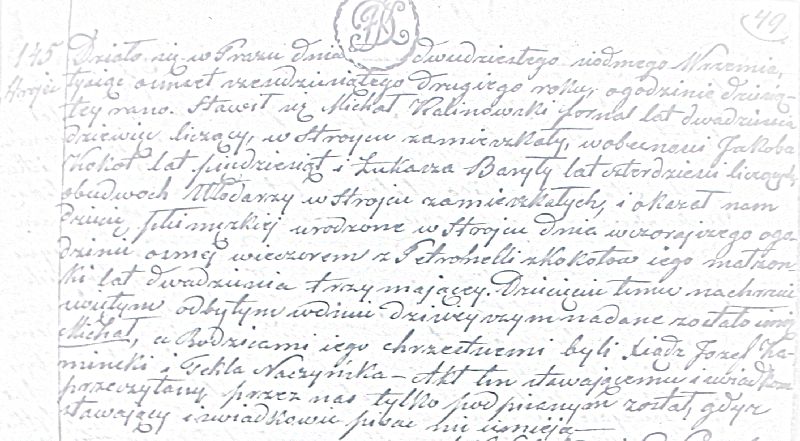 49
145 Działo się w Prazu dnia dwudziestego siodmego Wrzesnia,
Stroju tysiąc osmset szescdziesiątego drugiego roku, o godzinie dziesią-
tey rano. Stawił się Michał Kalinowski fornal lat dwadziescia
dziewięc liczący, w Stroycu zamieszkały, w obecnosci Jakoba
Kokot lat piędziesiąt i Łukasza Baryły lat czterdziesci liczących,
obudwoch Włodarzy w Stroycu zamieszkałych, i okazał nam
dziecię płci męzkiej urodzone w Stroycu dnia wczorajszego ogo-
dzinie osmej wieczorem z Petronelli z Kokotow iego małzon-
ki lat dwadziescia trzy mającey. Dziecięciu temu na chrzcie
swiętym odbytym w dniu dzisieyszym nadane zostało imię
Michał, a Rodzicami iego chrzestnemi byli Xiądz Jozef Ka-
minski i Tekla Naczyńska – Akt ten stawającemu i swiadkom
przeczytany przez nas tylko podpisanym został, gdyz
stawający i swiadkowie pisac nie umieją –